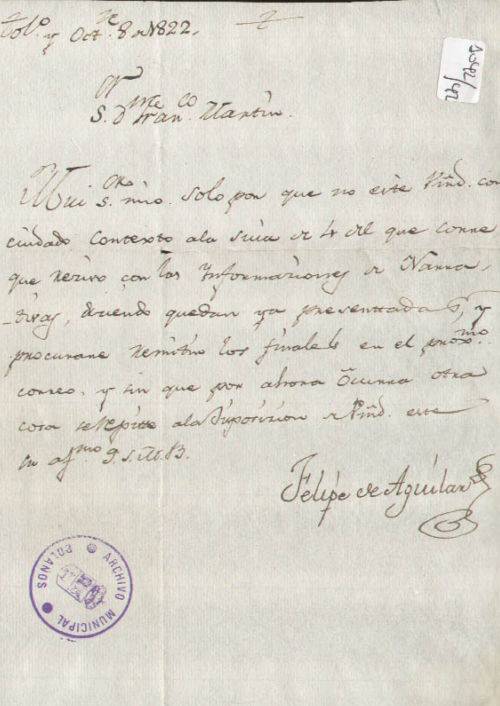 Tol.º y Oct.e 8 de 1822.
S. D.n Fran.co Martin.
Mui S.r mio. Solo por que no este Vmd. con
cuidado Contexto a la suia de 4 del que corre
que recivo con las Informaciones de Narra
tivas, diciendo quedan ya presenttadas, y
procurare remitir los finales en el prox.mo
correo. y sin que por ahora Ocurra otra
cosa se repite a la disposicion de Vmd. este
su af.mo S. S. Q. S. M. B.
Felipe de Aguilar
1822/42
ARCHIVO MUNICIPAL
BOLAÑOS